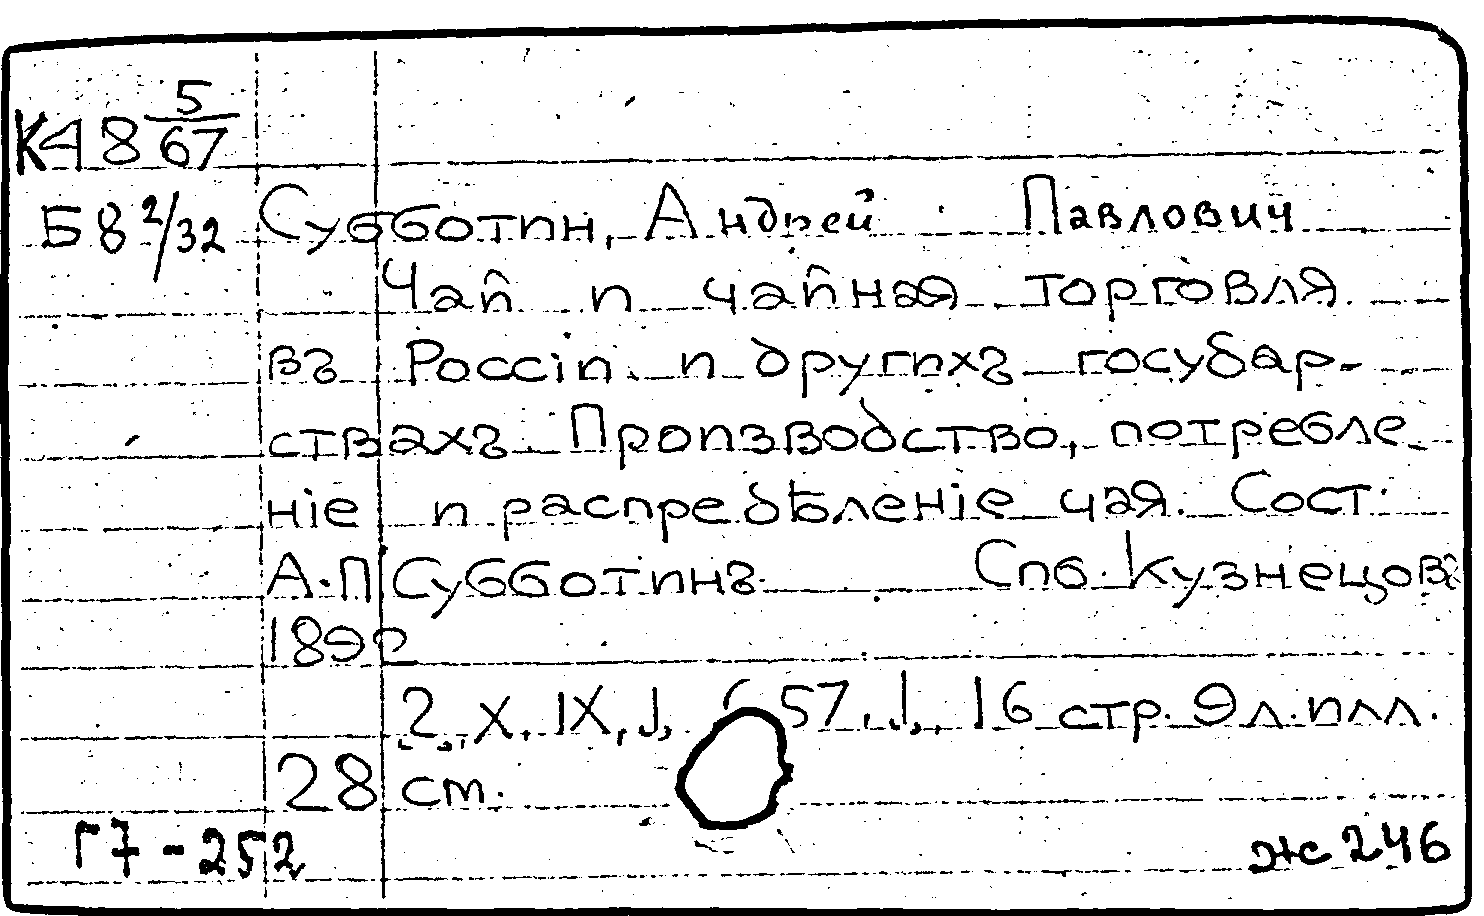 К48 5/67
Б8 2/32 Субботин, Андрей Павлович
Чай и чайная торговля
въ Россіи и другихъ государ-
ствахъ. Производство, потребле
ніе и распредѣленіе чая. Сост.
А.П. Субботинъ. Спб. Кузнецовъ
1892
2, X, IX, 1, 657, 1, 16 стр. 9 л. илл.
28 см.
Г7-252 ж 246